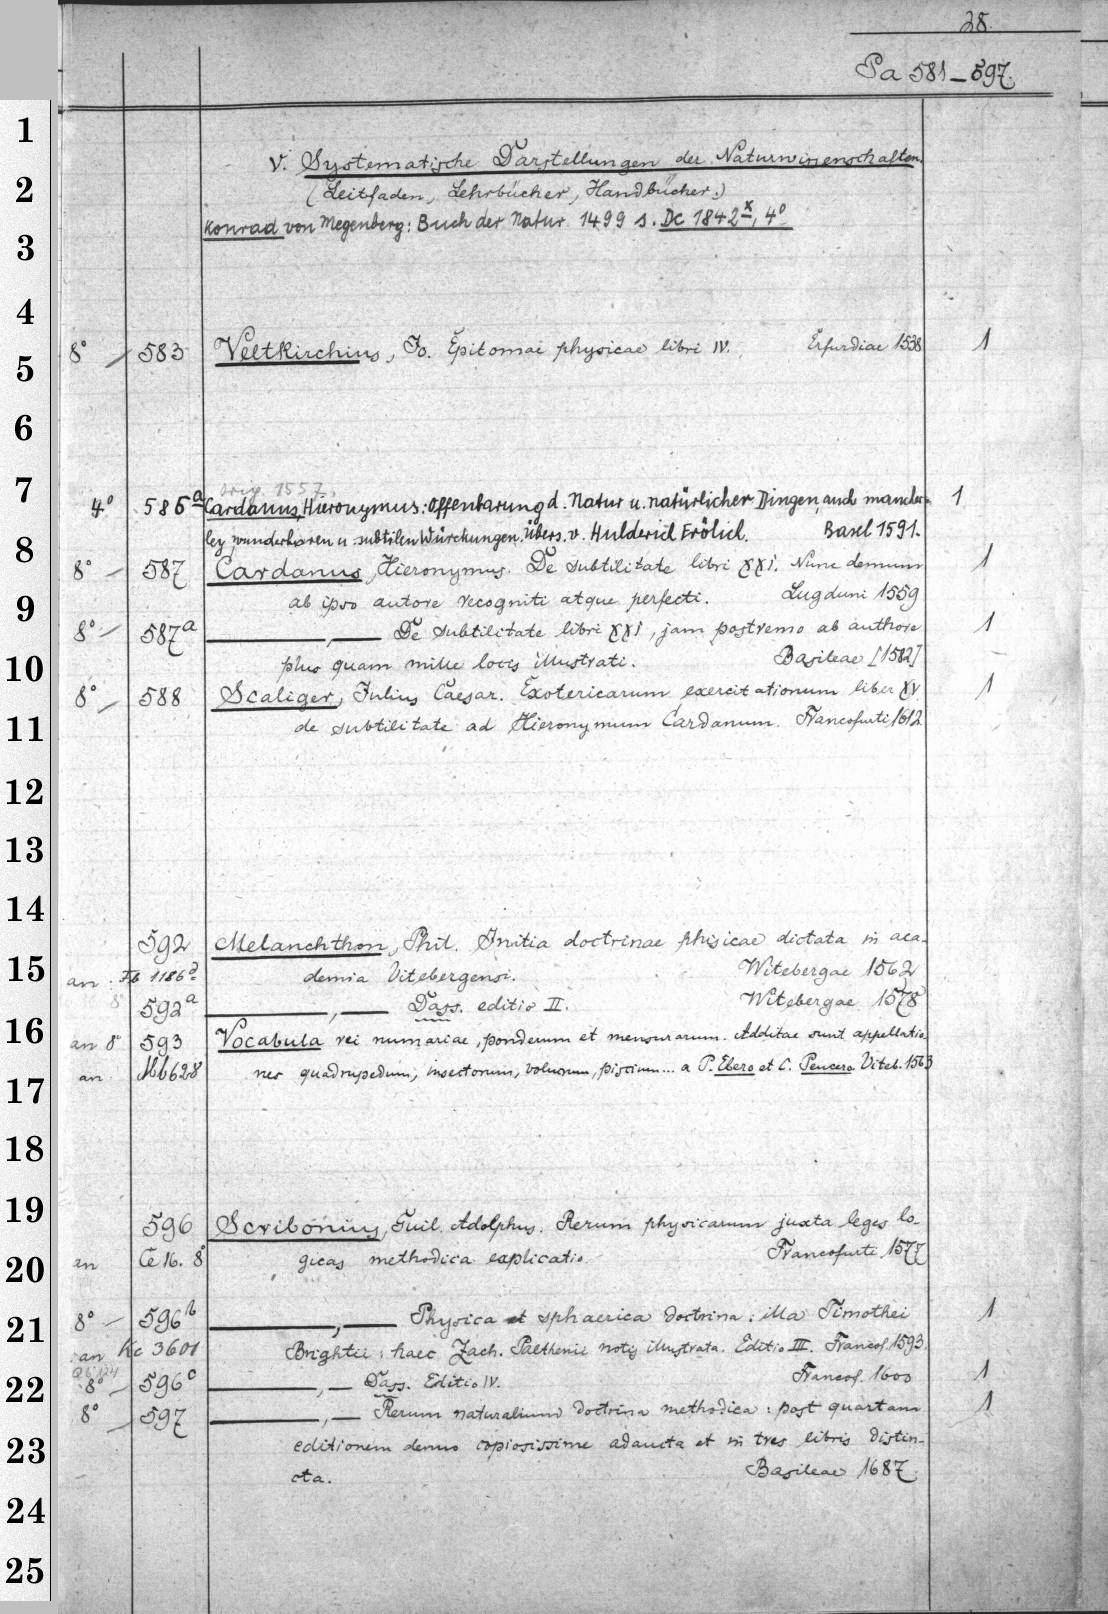 28.
Pa 581-597.
1
V. Systematische Darstellungen der Naturwissenschaften.
2 (Leitfaden, Lehrbücher, Handbücher.)
Konrad von Megenberg: Buch der Natur 1499 s. Dc 1842x, 4°
3
4
8° 583 Veltkirchius, Jo. Epitomai physicae libri IV. Erfurdiae 1538 1
5
6
7 orig. 1557.
4° 585a Cardanus, Hieronymus: Offenbarung d. Natur u. natürlicher Dingen, auch mancher- 1
8 ley wunderbaren u. subtilen Würckungen. Übers. v. Hulderich Frölich. Basel 1591.
8° 587 Cardanus, Hieronymus. De subtilitate libri XXI. Nunc demum 1
9 ab ipso autore recogniti atque perfecti. Lugduni 1559
8° 587a De subtilitate libri XXI, jam postremo ab authore 1
10 plus quam mille locis illustrati. Basileae [1582]
8° 588 Scaliger, Julius Caesar. Exotericarum exercitationum liber XV 1
11 de subtilitate ad Hieronymum Cardanum. Francofurti 1612
12
13
14
592 Melanchthon, Phil. Initia doctrinae phisicae dictata in aca-
15 an: Fb 1186 demia Vitebergensi. Witebergae 1562
8° 592a Dass. editio II. Witebergae 1578
16 an 8° 593 Vocabula rei numariae, ponderum et mensurarum. Additae sunt appellatio-
an Hb 628 nes quadrupedum, insectorum, volucrum, piscium... a P. Ebero et C. Peucero. Viteb. 1563
17
18
19
596 Scribonius, Guil. Adolphus. Rerum physicarum juxta leges lo-
20 an Ce 16. 8° gicas methodica explicatio Francofurti 1577
21 8° 596b Physica et sphaerica doctrina: illa Timothei 1
an Kc 3601 Brightii, haec Zach. Palthenii notis illustrata. Editio III. Francof. 1593.
22 8° 596c Dass. Editio IV. Francof. 1600 1
8° 597 Rerum naturalium doctrina methodica: post quartam 1
23 editionem denuo copiosissime adaucta et in tres libris distin-
cta. Basileae 1687.
24
25